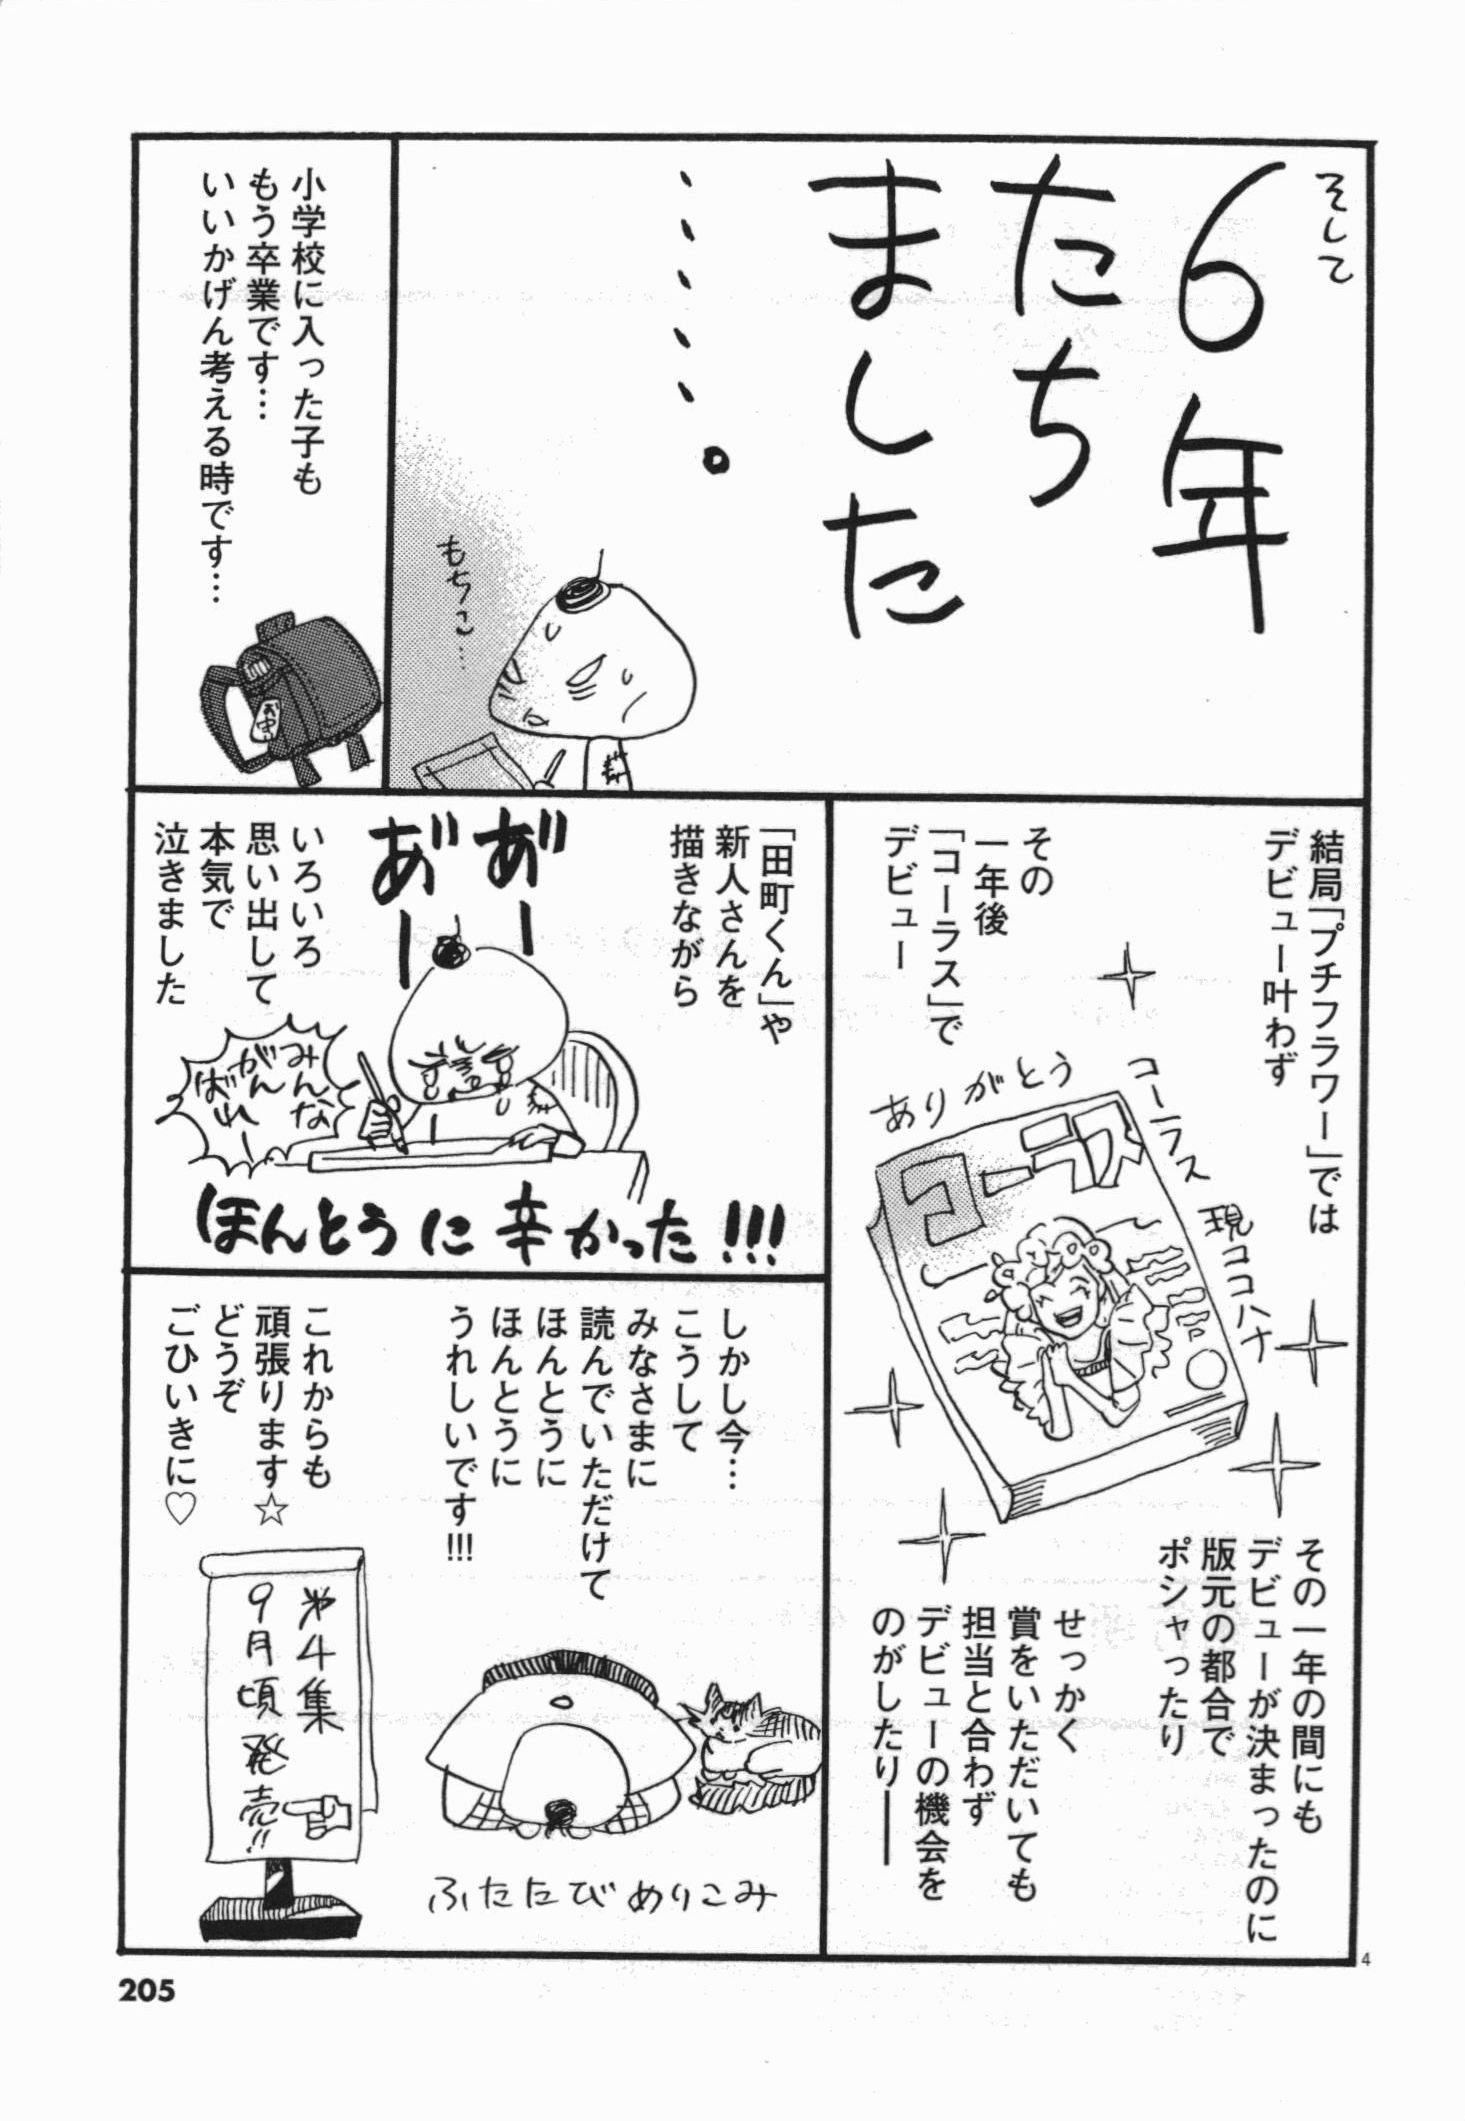 そして
6年
たち
ました
・・・・・。
もちこ…
小学校に入った子も
もう卒業です…
いいかげん考える時です…
結局「プチフラワー」では
デビュー叶わず
その
一年後
「コーラス」で
デビュー
ありがとう
コーラス
現ココハナ
コーラス
その一年の間にも
デビューが決まったのに
版元の都合で
ポシャったり
せっかく
賞をいただいても
担当と合わず
デビューの機会を
のがしたり――
「田町くん」や
新人さんを
描きながら
あ゛ー
あ゛ー
いろいろ
思い出して
本気で
泣きました
みんな
がん
ばれー
ほんとうに辛かった!!!
しかし今…
こうして
みなさまに
読んでいただけて
ほんとうに
ほんとうに
うれしいです!!!
これからも
頑張ります☆
どうぞ
ごひいきに♡
ふたたびめりこみ
第4集
9月頃発売!!
4
205